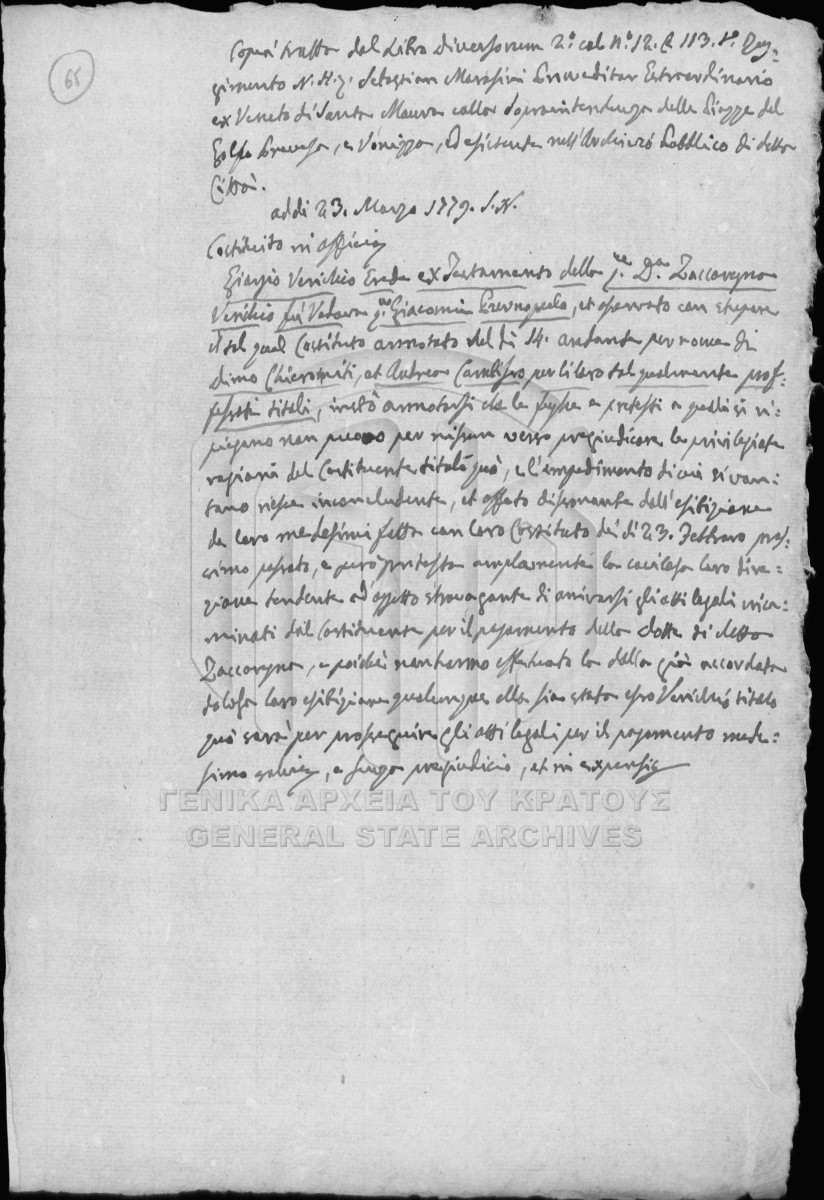 65
Copia tratta dal Libro Diversorum 2.º col Nº 12. C. 113. tº. Reg-
gimento N. H. ỹ. Sebastian Marasini Proveditor Estraordinario
ex Veneto di Santa Maura colla Sopraintendenza delle Piazze del
Golfo Prevesa, e Vonizza, ed esistente nell'Archivio Pubblico di detta
Città.
addì 23. Marzo 1779. S. N.
Costituito in officio
Giorgio Verichio Erede ex Testamento della q. Dª. Zaccoregna
Verichio fù Vedova Giacomin, et osservato con stupore
il tal qual Costituto annotato del dì 14. andante per nome di
Dimo, et Andrea per li loro tal qualmente prof-
fessati titoli, instò annotarsi che le fughe e pretesti a quali si ri-
piegano non ponno per nissun verso pregiudicare le privilegiate
ragioni del Costituente titolo quò, e l'impedimento di cui si van-
tano riesce inconcludente, et affatto dall'esibizione
da loro medesimi fatta con loro Costituto dei dì 23. Febbraro pros-
simo passato, e però protesta amplamente la loro dire-
zione tendente ad oggetto stravagante di gli atti legali inca-
minati dal Costituente per il pagamento della dotte di detta
Zaccoregna, e poiché non hanno effettuato la della già accordata
loro esibizione qualunque ella sia stata esso Verichio titolo
quò sarà per proseguire gli atti legali per il pagamento mede-
simo, e senza pregiudicio, et in expensis
ΓΕΝΙΚΑ ΑΡΧΕΙΑ ΤΟΥ ΚΡΑΤΟΥΣ
GENERAL STATE ARCHIVES